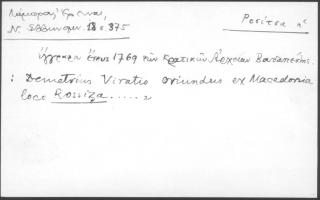 Λάμπρος Σπ.
Ν. Ελληνομν. 18 σ. 375
Ροσίτσα ἡ
ἔγγραφα ἔτους 1769 τῶν Κρατικῶν Ἀρχείων Βουδαπέστης
: Demetrius Viratio oriundus ex Macedonia
loco Rossiza ..... »